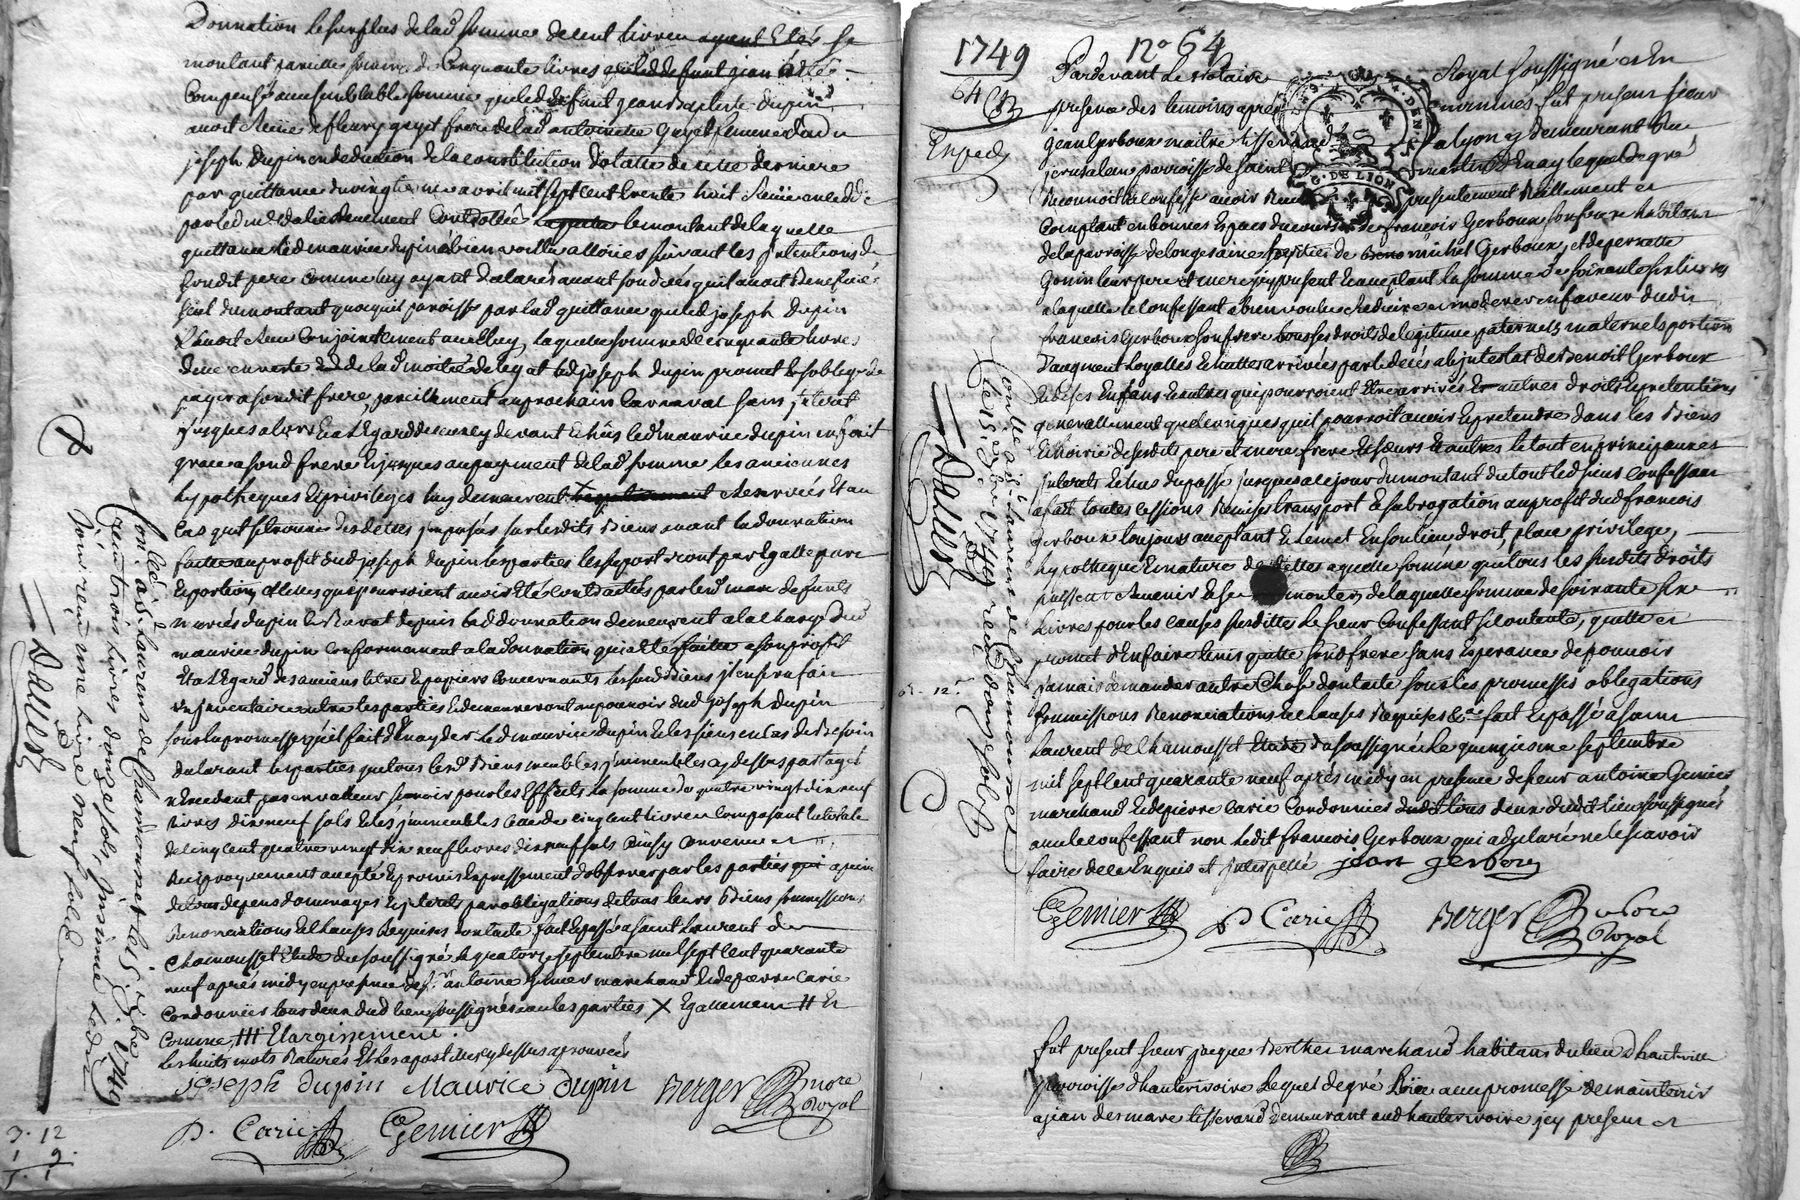 Donnation le surplus de lad somme de cent livres ayant Eté
montant pareille somme de Cinquante livres que led defunt jean
Compensé avec semblable somme que led defunt jean baptiste dupin
avoit Reçue de fleury guyot frere de lad antoinette guyot femme dud
joseph dupin en deduction de la constitution dotalle de cette derniere
par quittance du vingt avril mil sept cent trente huit Reçue
par led une dalie duement Controllée le montant de laquelle
quittance led maurice dupin a bien voulu allouer suivant les Intentions de
sondit pere comme luy ayant declaré avant son decés quil avoit Beneficié
seul du montant quoiquil paroisse par lad quittance que led joseph dupin
l'avoit Reçu Conjointement avec luy, laquelle somme de cinquante livres
due en reste de lad moitié de legat led joseph dupin promet et soblige de
payer a sondit frere pareillement au prochain Carnaval sans Interet
jusques alors Et a l'Egard de ceux cy devant Echus led maurice dupin en fait
grace a sond frere Et jusques au payement de lad somme les anciennes
hypotheques Et privileges luy demeurent X Reservés Et au
cas quil se trouve des dettes imposées sur lesdits Biens avant la donnation
faitte au profit dud joseph dupin les parties les suporteront par Egalle part
Et portion, celles qui pourroient avoir Eté contractées par led mariés defunts
mariés dupin Et Ravat depuis lad donnation demeurent a la charge dud
maurice dupin conformement a la donnation qui a Eté faitte a son profit
Et a L'Egard des anciens titres Et papiers concernants les susd Biens Il en sera fait
un Inventaire entre les parties Et demeureront au pouvoir dud joseph dupin
sous la promesse quil fait d'En ayder led maurice dupin Et les siens en cas de Besoin
declarant les parties que tous lesd Biens meubles Immeubles cy dessus partagés
n'Excedent pas en valleur scavoir pour les Effets la somme de quatre vingt dix neuf
livres dix neuf sols Et les Immeubles celle de cinq cent livres composant le totale
de cinq cent quatre vingt dix neuf livres dix neuf sols Ainsy convenu
Reciproquement accepté Et promis Expressement d'observer par les parties a peine
de tous depens dommages Interets par obligations de tous leurs Biens soumissions
Renonciations Et clauses Requises dont acte fait Et passé a saint Laurent de
Chamousset Etude du soussigné le quatorze septembre mil sept cent quarante
neuf aprés midy en presence de sr antoine Gemier marchand Et de pierre Carie
Cordonnier tous deux dud lieu soussignés avec les parties X Egallement # Et
Comme, ### Elargissement.
les huits mots Raturés Et les apostilles cy dessus aprouvées
joseph dupin Maurice dupin Berger nore
Royal
P. Carie Gemier
Conllé a St Laurent de Chamousset le 15 7bre 1749
Reçu trois livres douze sols
pour reçu une livre neuf sols
Dalles
3. 12
1 9.
5. 1
1749 No 64
64
Exped
Pardevant Le Notaire Royal soussigné et En
presence des temoins aprés nommés fut present sieur
jean Gerboux maitre tisserand a lyon y demeurant Rue
jerusalem parroisse de saint martin d'Enay lequel de gré
Reconnoit Et confesse avoir Reçu presentement Reellement et
Comptant en bonnes Especes du cours de francois Gerboux son frere habitant
de la parroisse de longessaigne heritier de michel Gerboux, et de pernette
Gonin leurs pere et mere icy present Et acceptant la somme de soixante six livres
a laquelle le confessant a bien voulu Reduire et moderer en faveur dudit
francois Gerboux son frere tous ses droits de legitime paternels maternels portion
D'augment loyalles Echuttes arrivées par le decés abjntestat de Benoit Gerboux
Et desd Enfans Et autres qui pourroient Etre arrivés Et autres droits Et pretentions
generallement quelconques quil pourroit avoir Et pretendre dans les Biens
Et hoirie desdits pere et mere frere Et sœurs Et autres le tout en principaux et
Interets Echus du passé jusques a ce jour du montant du tout led sieur confessant
a fait toutes cessions Remises transport Et subrogation au profit dud francois
gerboux toujours acceptant Et le met En son lieu droit, place privilege,
hypotheque Et nature de dettes a quelle somme que tous les susdits droits
puissent Revenir Et se monter, de laquelle somme de soixante six
livres pour les causes susdittes Le sieur Confessant se contente, quitte et
promet d'En faire tenir quitte sond frere sans Esperance de pouvoir
jamais demander autre Chose dont acte sous les promesses obligations
soumissions Renonciations Et clauses Requises &a fait Et passé a saint
Laurent de Chamousset Etude du soussigné Le quinzieme septembre
mil sept cent quarante neuf aprés midy en presence de sieur antoine Gemier
marchand Et de pierre Carie Cordonnier tous deux dudit lieu soussignés
avec le confessant non ledit francois Gerboux qui a declaré ne le scavoir
faire de ce Enquis et Interpellé jean gerboux
Gemier P Carie Berger nore
Royal
Conllé a St Laurent de Chamousset
le 15. 7bre 1749 reçu douze sols
Dalles
12
G. DE LION
fut present sieur jacque Berthet marchand habitant du lieu d'hauterive
parroisse d'hauterivoire Lequel de gré Loüe avec promesse de maintenir
a jean desmare tisserand demeurant aud hauterivoire jcy present et